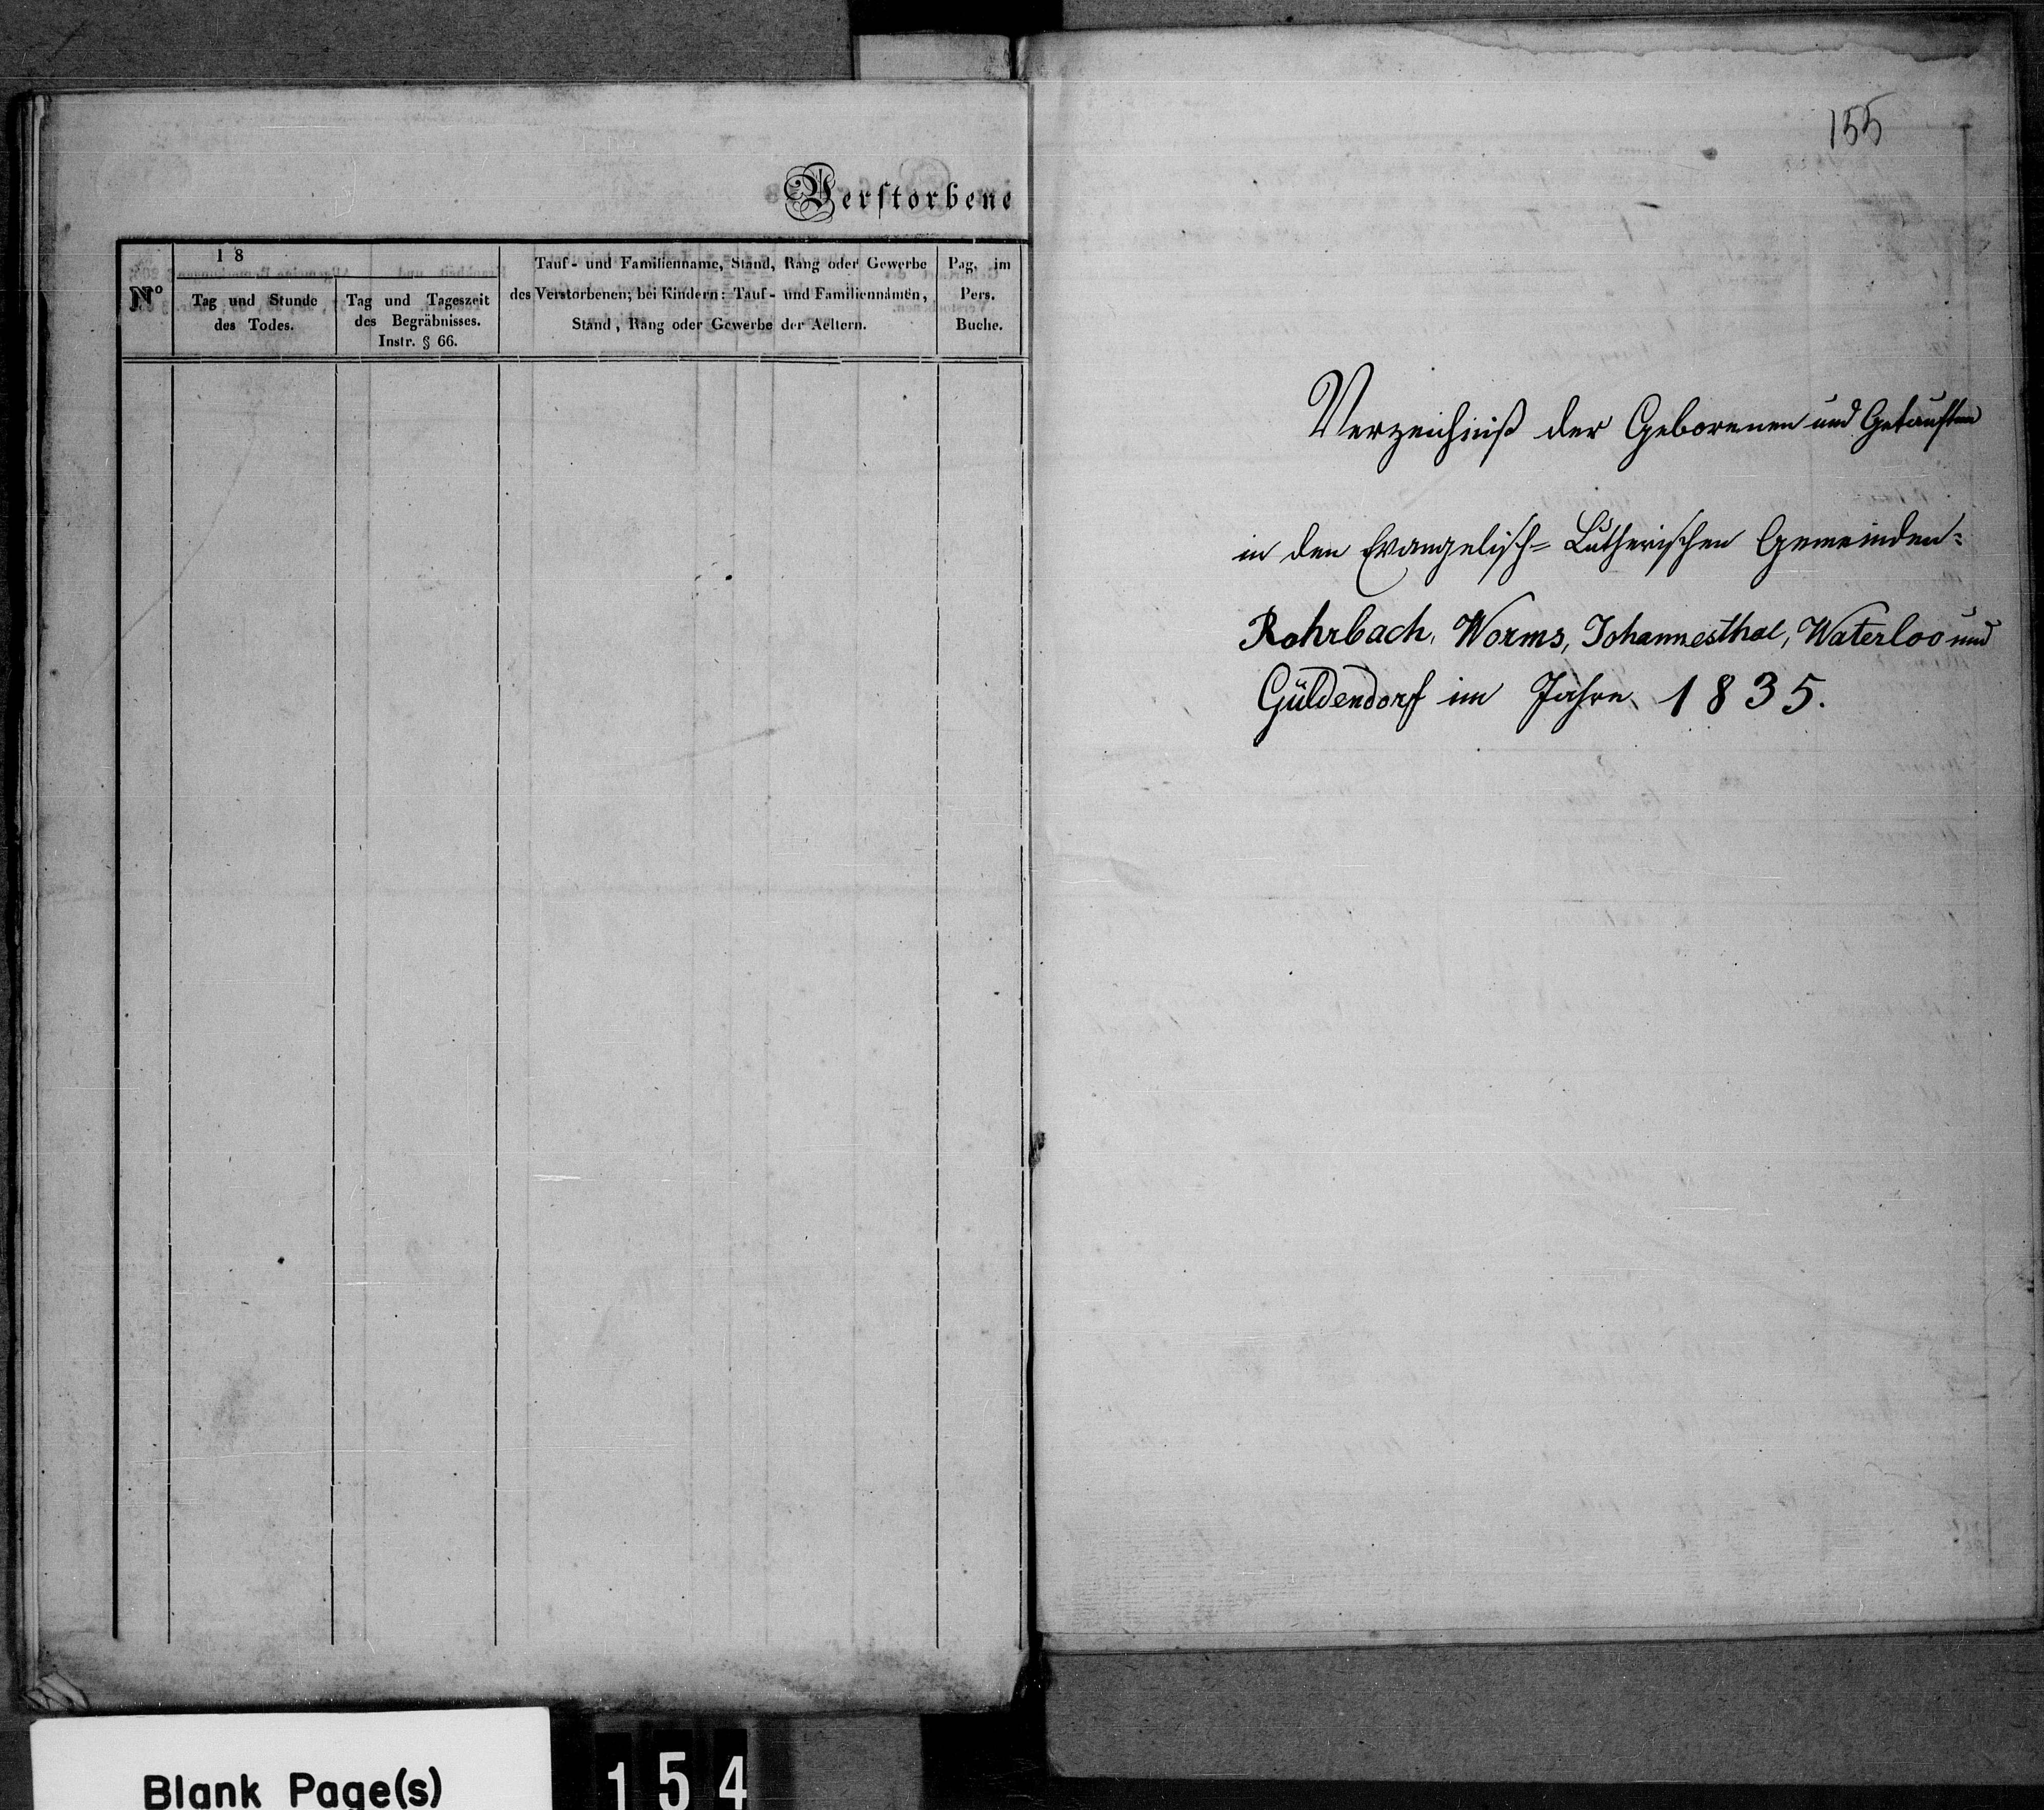 Verstorbene
18
Nº
Tag und Stunde
des Todes.
Tag und Tageszeit
des Begräbnisses.
Instr. § 66.
Tauf- und Familienname, Stand, Rang oder Gewerbe
des Verstorbenen; bei Kindern: Tauf- und Familiennamen,
Stand, Rang oder Gewerbe der Aeltern.
Pag. im
Pers.
Buche.
155
Verzeichniß der Geborenen und Getauften
in den Evangelisch=Lutherischen Gemeinden:
Rohrbach, Worms, Johannesthal, Waterloo und
Güldendorf im Jahre 1835.
Blank Page(s)
154